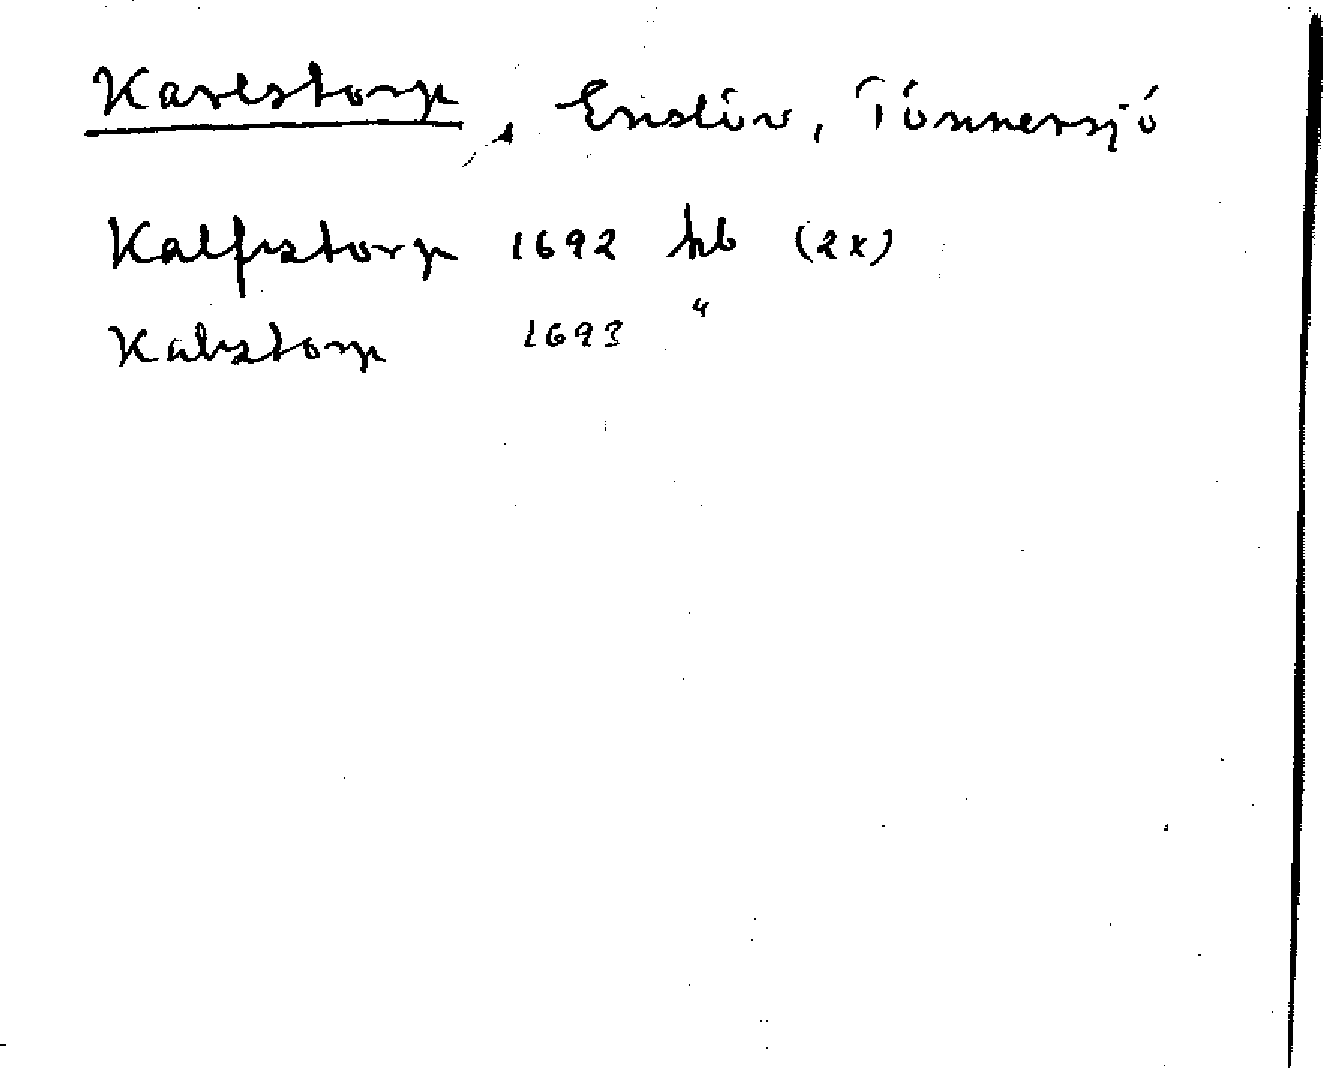 Karlstorp, Enslöv, Tönnersjö
Kalfstorp 1692 hb (2x)
Kalvstorp 1693 "